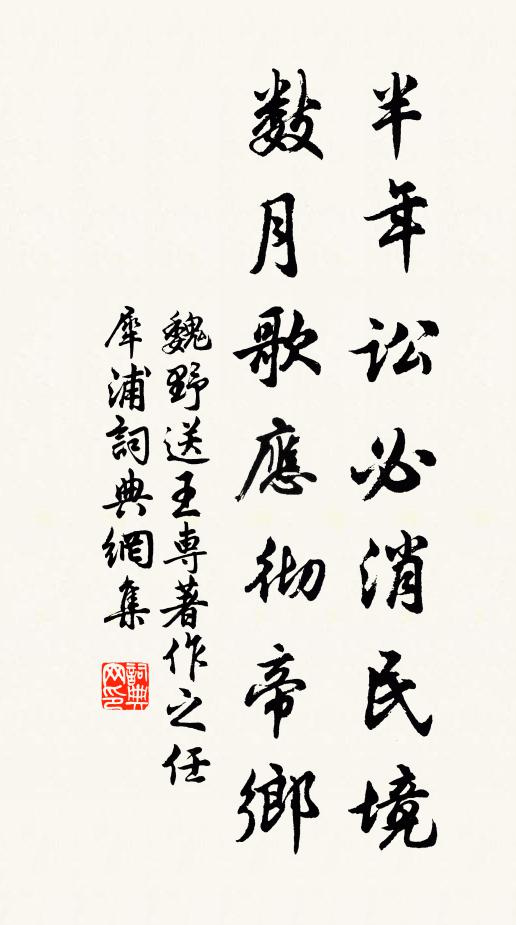 半年讼必消民境
数月歌應彻帝鄉
魏野送王専著作之任
犀浦詞典網集
詞典
网印